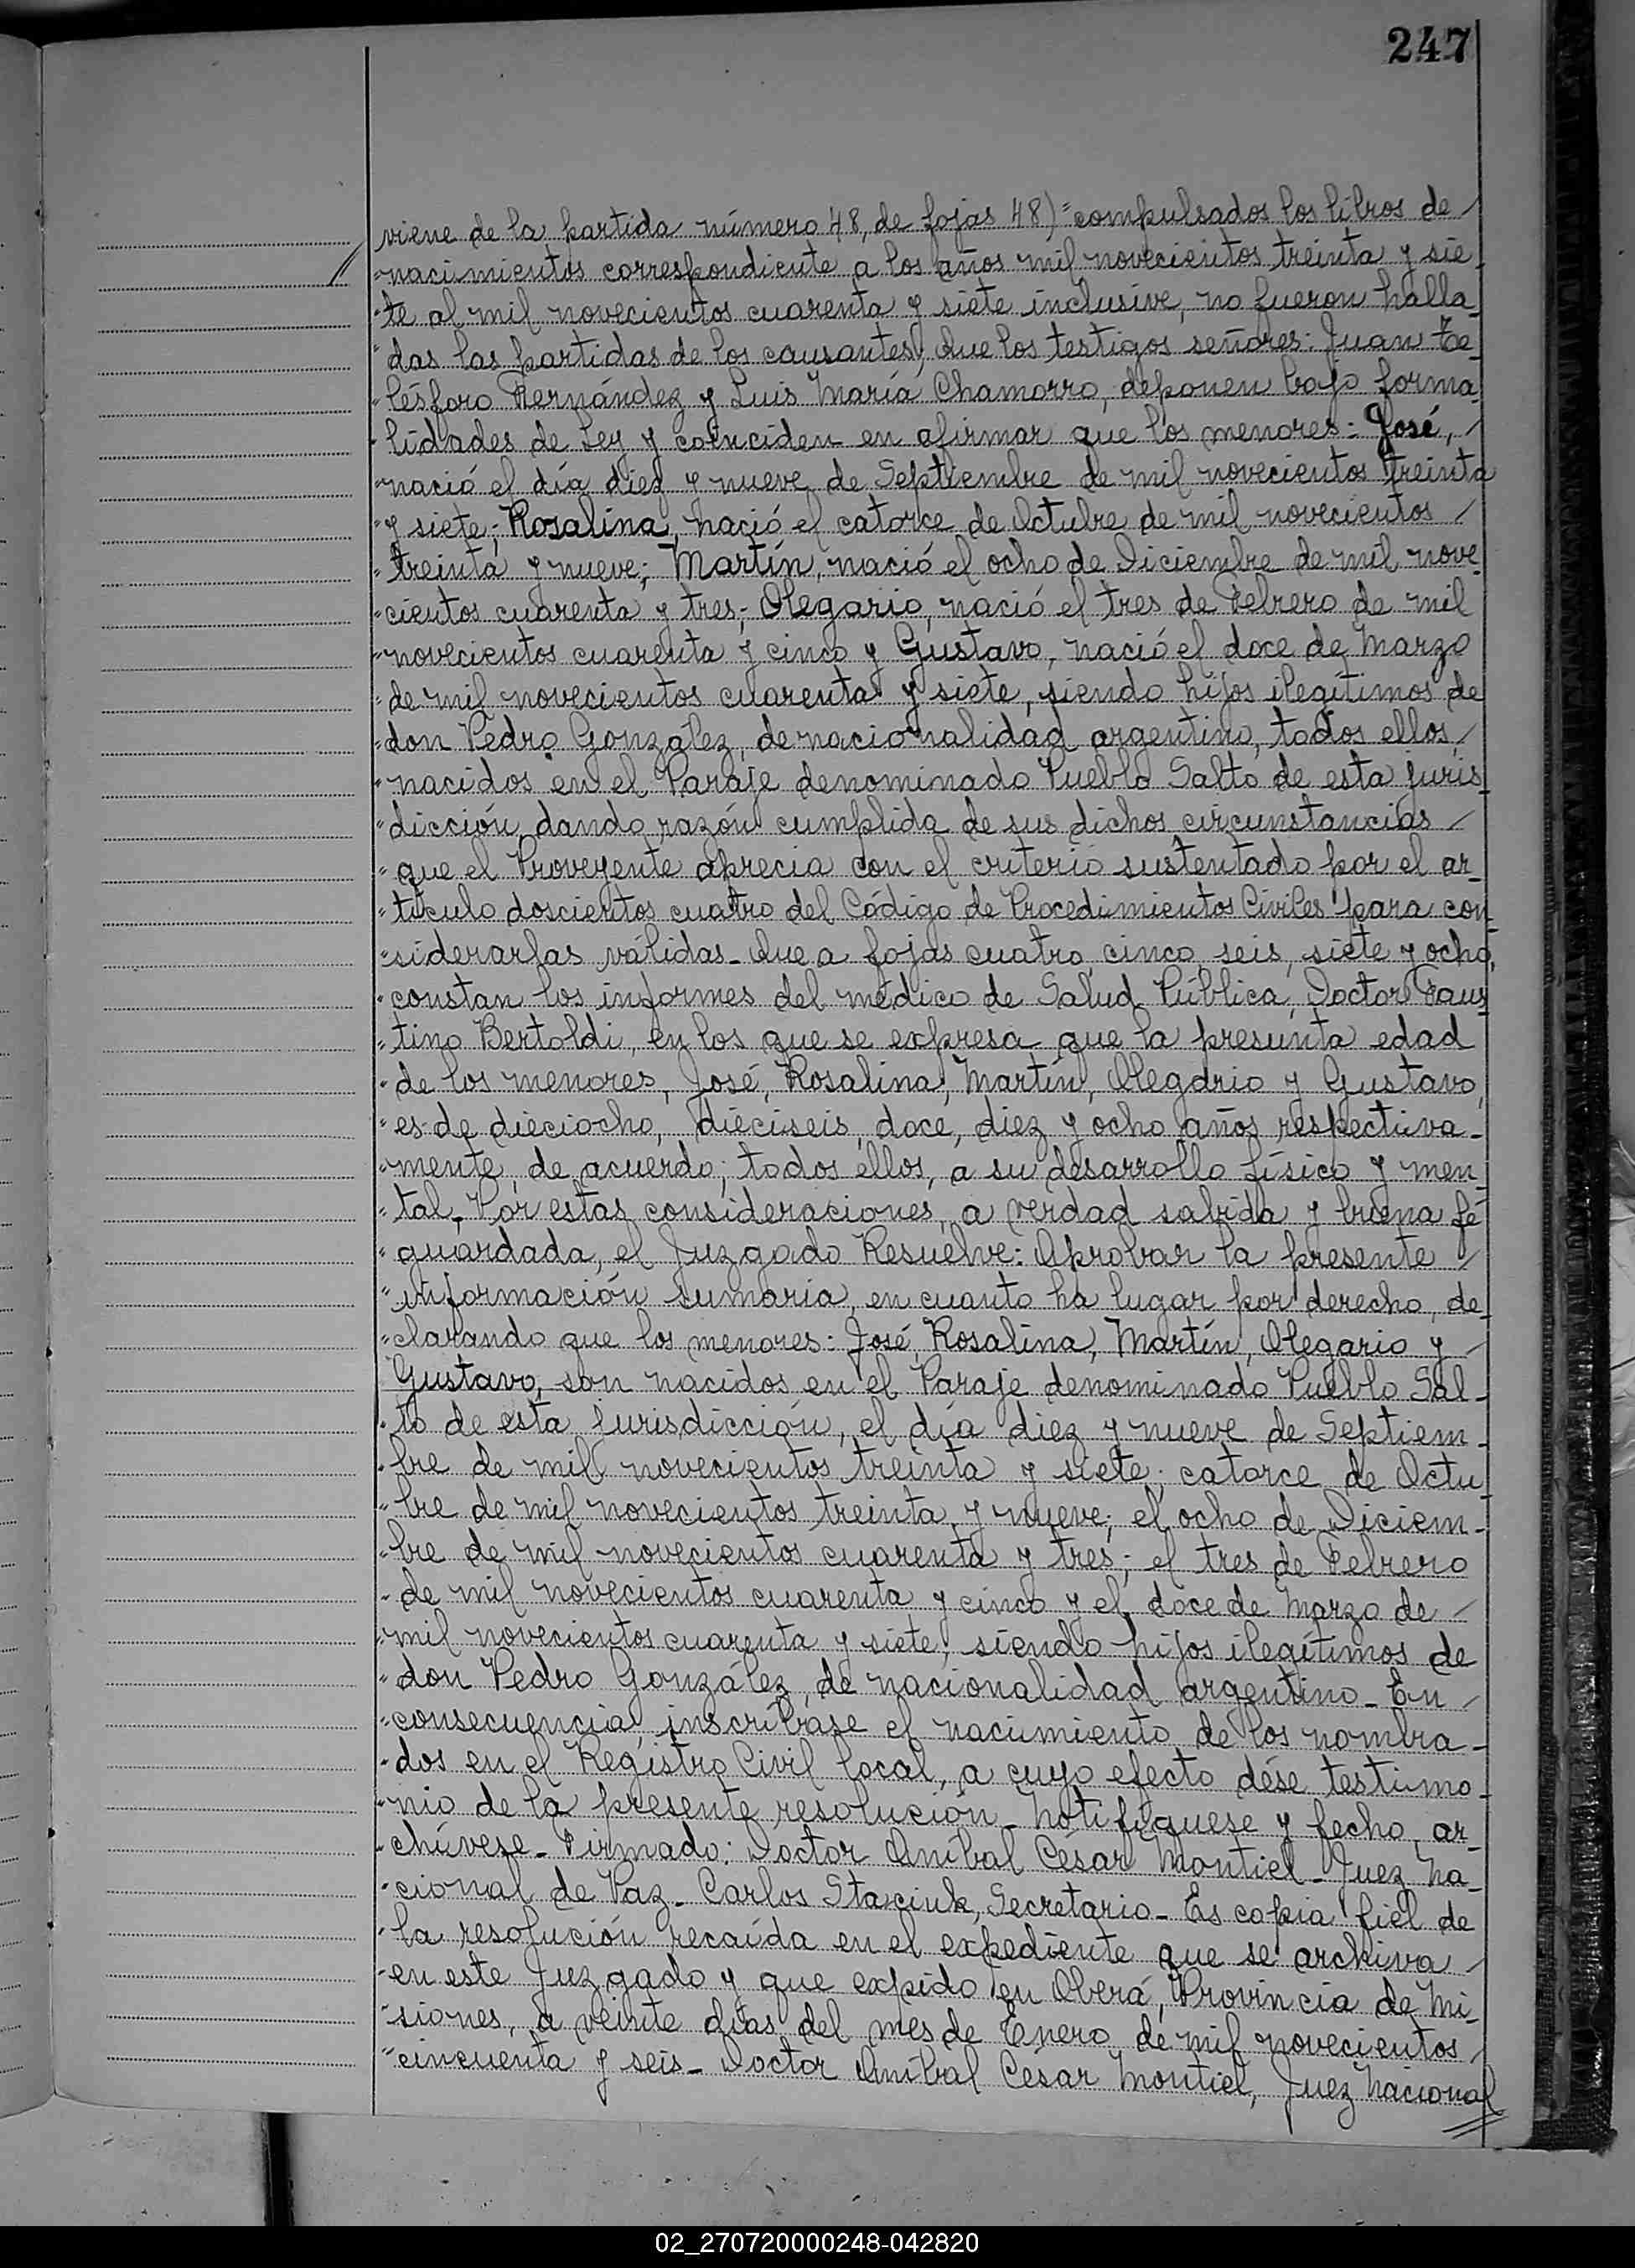 247
viene de la partida número 48, de fojas 48)"compulsados los libros de /
"nacimientos correspondiente a los años mil novecientos treinta y sie_
"te al mil novecientos cuarenta y siete inclusive, no fueron halla_
"das las partidas de los causantes; Que los testigos señores: Juan Te_
"lésforo Fernández y Luis María Chamorro, deponen bajo forma_
"lidades de Ley y coinciden en afirmar que los menores: José, /
"nació el día diez y nueve de Septiembre de mil novecientos treinta
"y siete; Rosalina, nació el catorce de Octubre de mil novecientos /
"treinta y nueve; Martín, nació el ocho de Diciembre de mil nove_
"cientos cuarenta y tres; Olegario, nació el tres de Febrero de mil
"novecientos cuarenta y cinco y Gustavo, nació el doce de Marzo
"de mil novecientos cuarenta y siete, siendo hijos ilegítimos de
"don Pedro González, de nacionalidad argentino, todos ellos /
"nacidos en el Paraje denominado Pueblo Salto de esta juris_
"dicción, dando razón cumplida de sus dichos, circunstancias /
"que el Proveyente aprecia con el criterio sustentado por el ar_
"tículo doscientos cuatro del Código de Procedimientos Civiles para con_
"siderarlas válidas_ Que a fojas cuatro, cinco, seis, siete y ocho,
"constan los informes del médico de Salud Pública, Doctor Faus_
"tino Bertoldi, en los que se expresa que la presunta edad
"de los menores, José, Rosalina, Martín, Olegario y Gustavo,
"es de dieciocho, dieciseis, doce, diez y ocho años respectiva_
"mente, de acuerdo; todos ellos, a su desarrollo físico y men_
"tal_ Por estas consideraciones, a verdad sabida y buena fé
"guardada, el Juzgado Resuelve: Aprobar la presente /
"información sumaria, en cuanto ha lugar por derecho, de_
"clarando que los menores: José, Rosalina, Martín, Olegario y /
Gustavo, son nacidos en el Paraje denominado Pueblo Sal_
"to de esta jurisdicción, el día diez y nueve de Septiem_
"bre de mil novecientos treinta y siete; catorce de Octu_
"bre de mil novecientos treinta y nueve; el ocho de Diciem_
"bre de mil novecientos cuarenta y tres; el tres de Febrero
"de mil novecientos cuarenta y cinco y el doce de Marzo de /
"mil novecientos cuarenta y siete, siendo hijos ilegítimos de
"don Pedro González, de nacionalidad argentino_ En /
"consecuencia, inscríbase el nacimiento de los nombra_
"dos en el Registro Civil local, a cuyo efecto dése testimo_
"nio de la presente resolución_ Notifíquese y fecho, ar_
"chívese_ Firmado: Doctor Aníbal César Montiel_ Juez Na_
"cional de Paz_ Carlos Staciuk, Secretario_ Es copia fiel de
"la resolución recaída en el expediente que se archiva /
"en este Juzgado y que expido en Oberá, Provincia de Mi_
"siones, a veinte días del mes de Enero de mil novecientos /
"cincuenta y seis_ Doctor Aníbal César Montiel, Juez Nacional
02_270720000248-042820